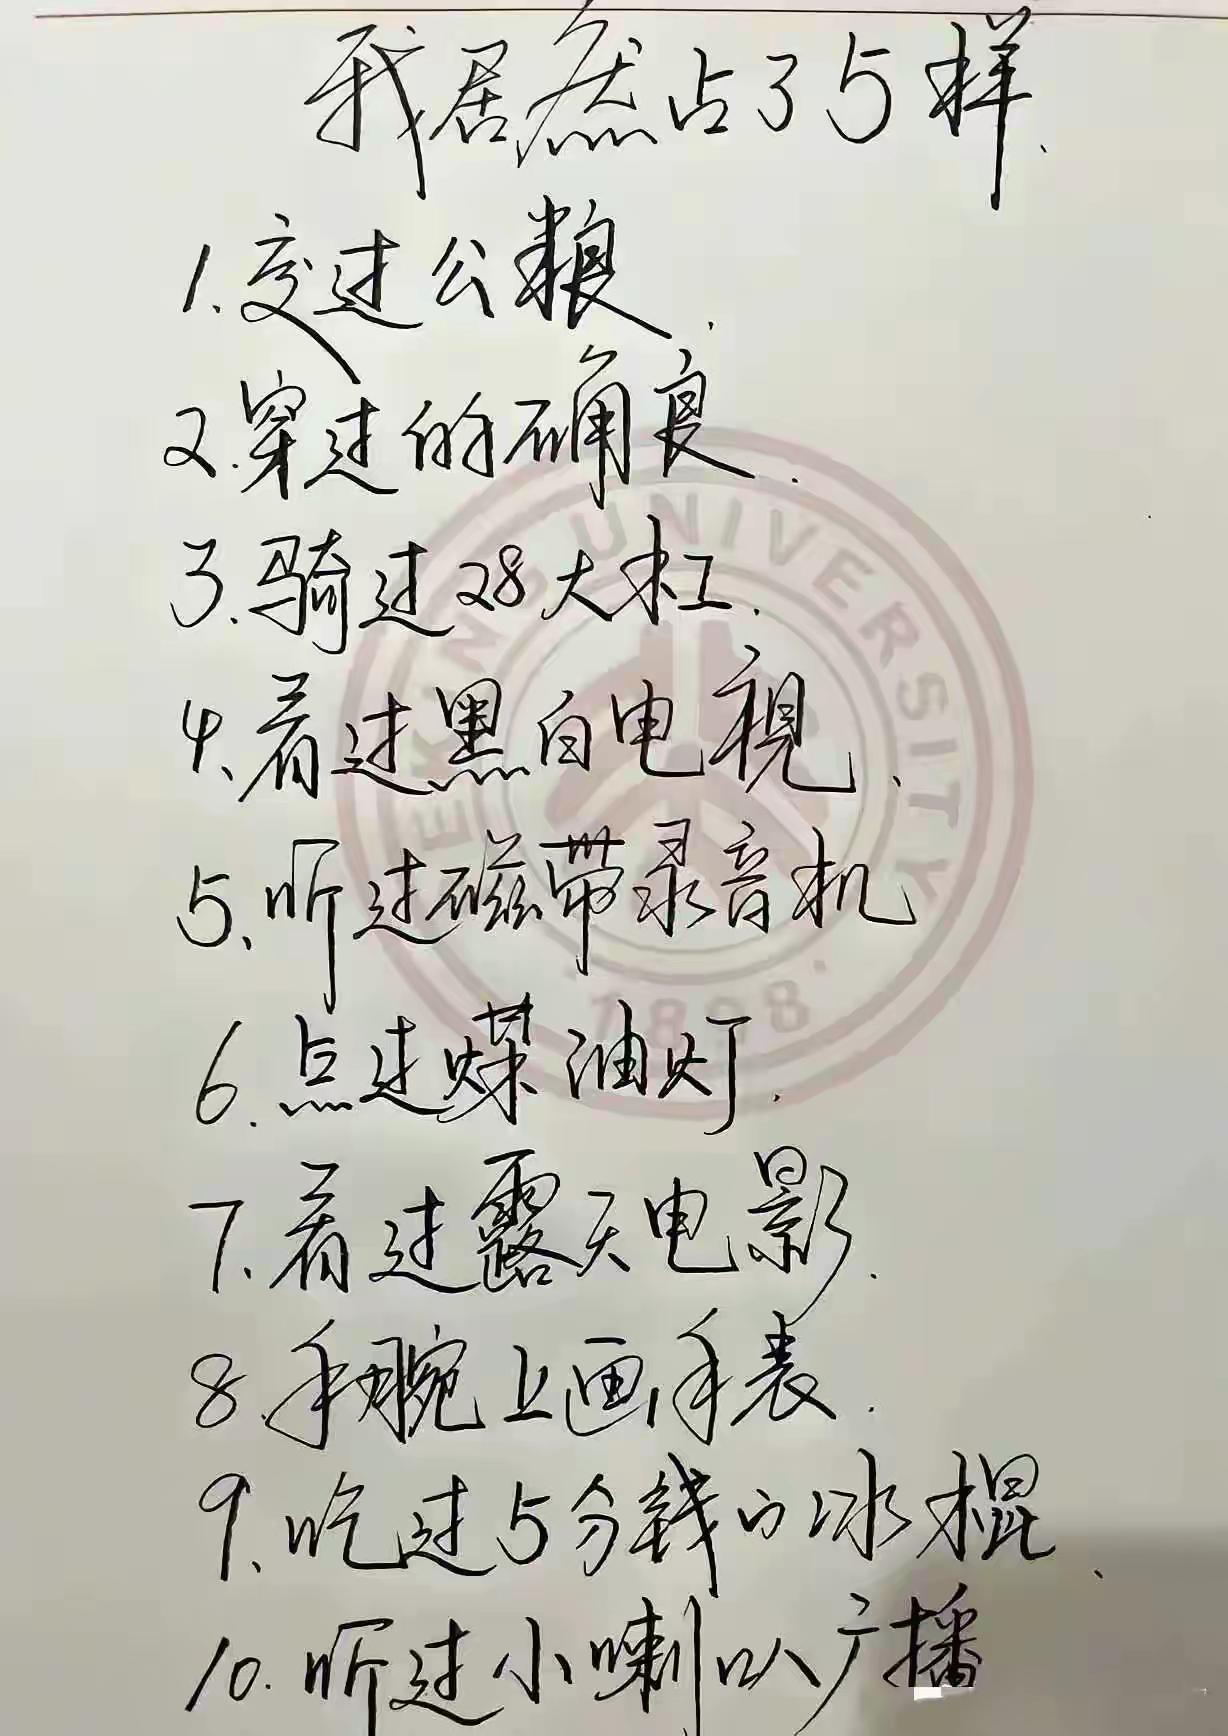 我居然占了5样.
1.交过公粮.
2.穿过的确良.
3.骑过28大杠.
4.看过黑白电视.
5.听过磁带录音机
6.点过煤油灯.
7.看过露天电影.
8.手腕上画手表.
9.吃过5分钱的冰棍.
10.听过小喇叭广播
EKING UNIVERSITY
1898